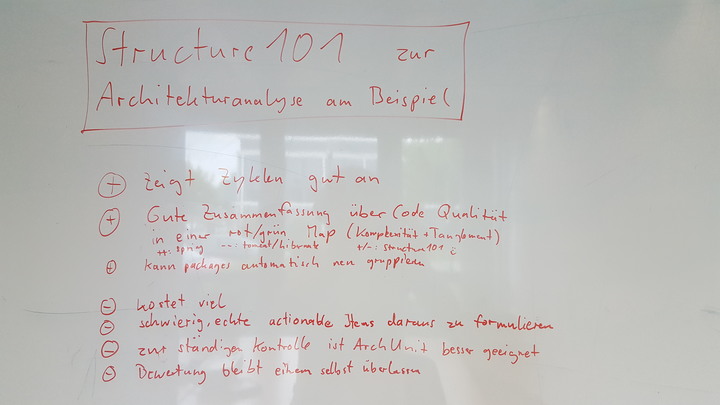 Structure101 zur
Architekturanalyse am Beispiel
⊕ zeigt Zyklen gut an
⊕ Gute Zusammenfassung über Code Qualität
in einer rot/grün Map (Komplexität + Tanglement)
++: spring --: tomcat/hibernate +/-: Structure101
⊕ kann packages automatisch neu gruppieren
⊖ kostet viel
⊖ schwierig, echte actionable Items daraus zu formulieren
⊖ zur ständigen Kontrolle ist ArchUnit besser geeignet
⊖ Bewertung bleibt einem selbst überlassen